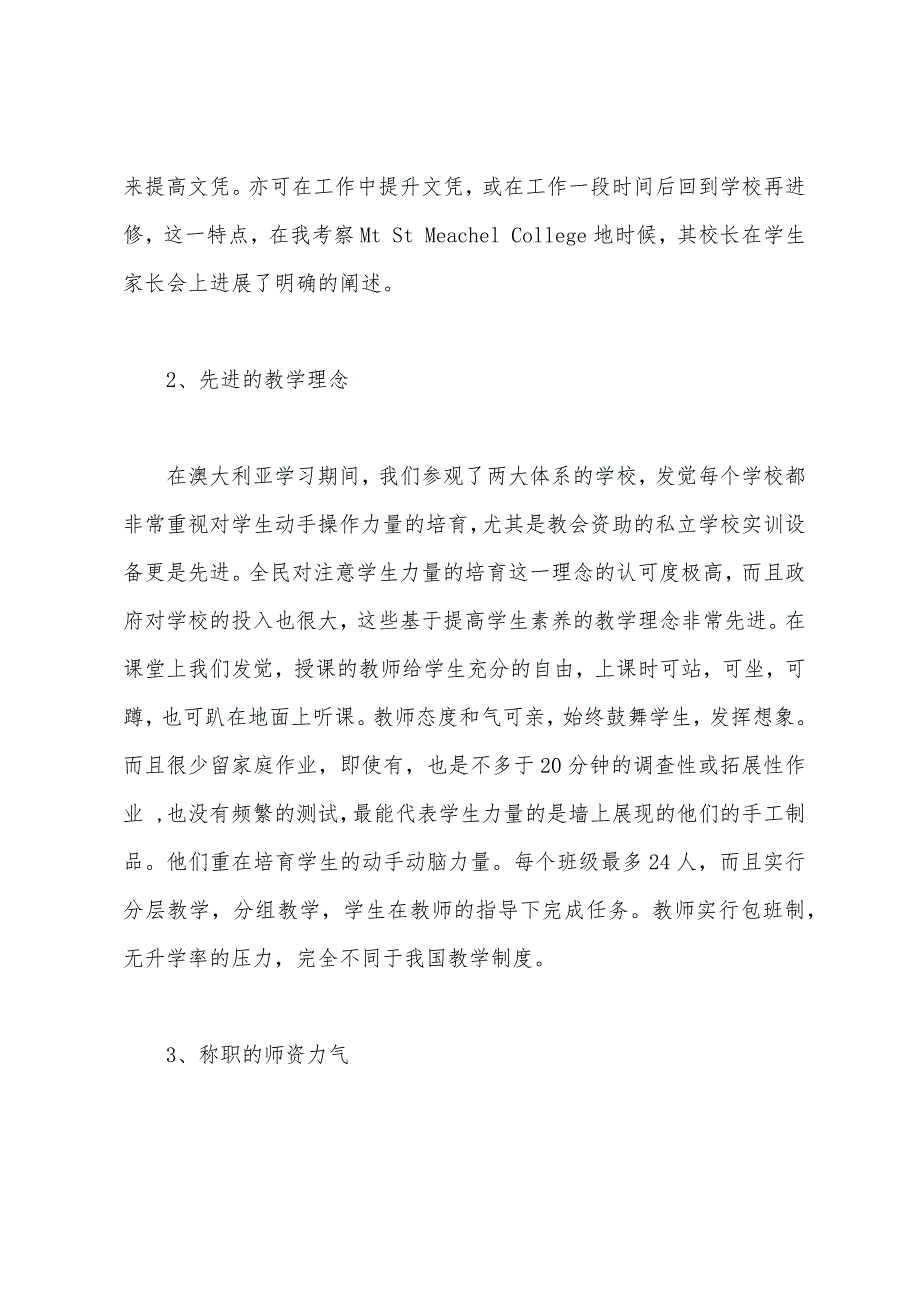 来提高文凭。亦可在工作中提升文凭，或在工作一段时间后回到学校再进
修，这一特点，在我考察Mt St Meachel College地时候，其校长在学生
家长会上进展了明确的阐述。
2、先进的教学理念
在澳大利亚学习期间，我们参观了两大体系的学校，发觉每个学校都
非常重视对学生动手操作力量的培育，尤其是教会资助的私立学校实训设
备更是先进。全民对注意学生力量的培育这一理念的认可度极高，而且政
府对学校的投入也很大，这些基于提高学生素养的教学理念非常先进。在
课堂上我们发觉，授课的教师给学生充分的自由，上课时可站，可坐，可
蹲，也可趴在地面上听课。教师态度和气可亲，始终鼓舞学生，发挥想象。
而且很少留家庭作业，即使有，也是不多于20分钟的调查性或拓展性作
业 ,也没有频繁的测试，最能代表学生力量的是墙上展现的他们的手工制
品。他们重在培育学生的动手动脑力量。每个班级最多24人，而且实行
分层教学，分组教学，学生在教师的指导下完成任务。教师实行包班制，
无升学率的压力，完全不同于我国教学制度。
3、称职的师资力气